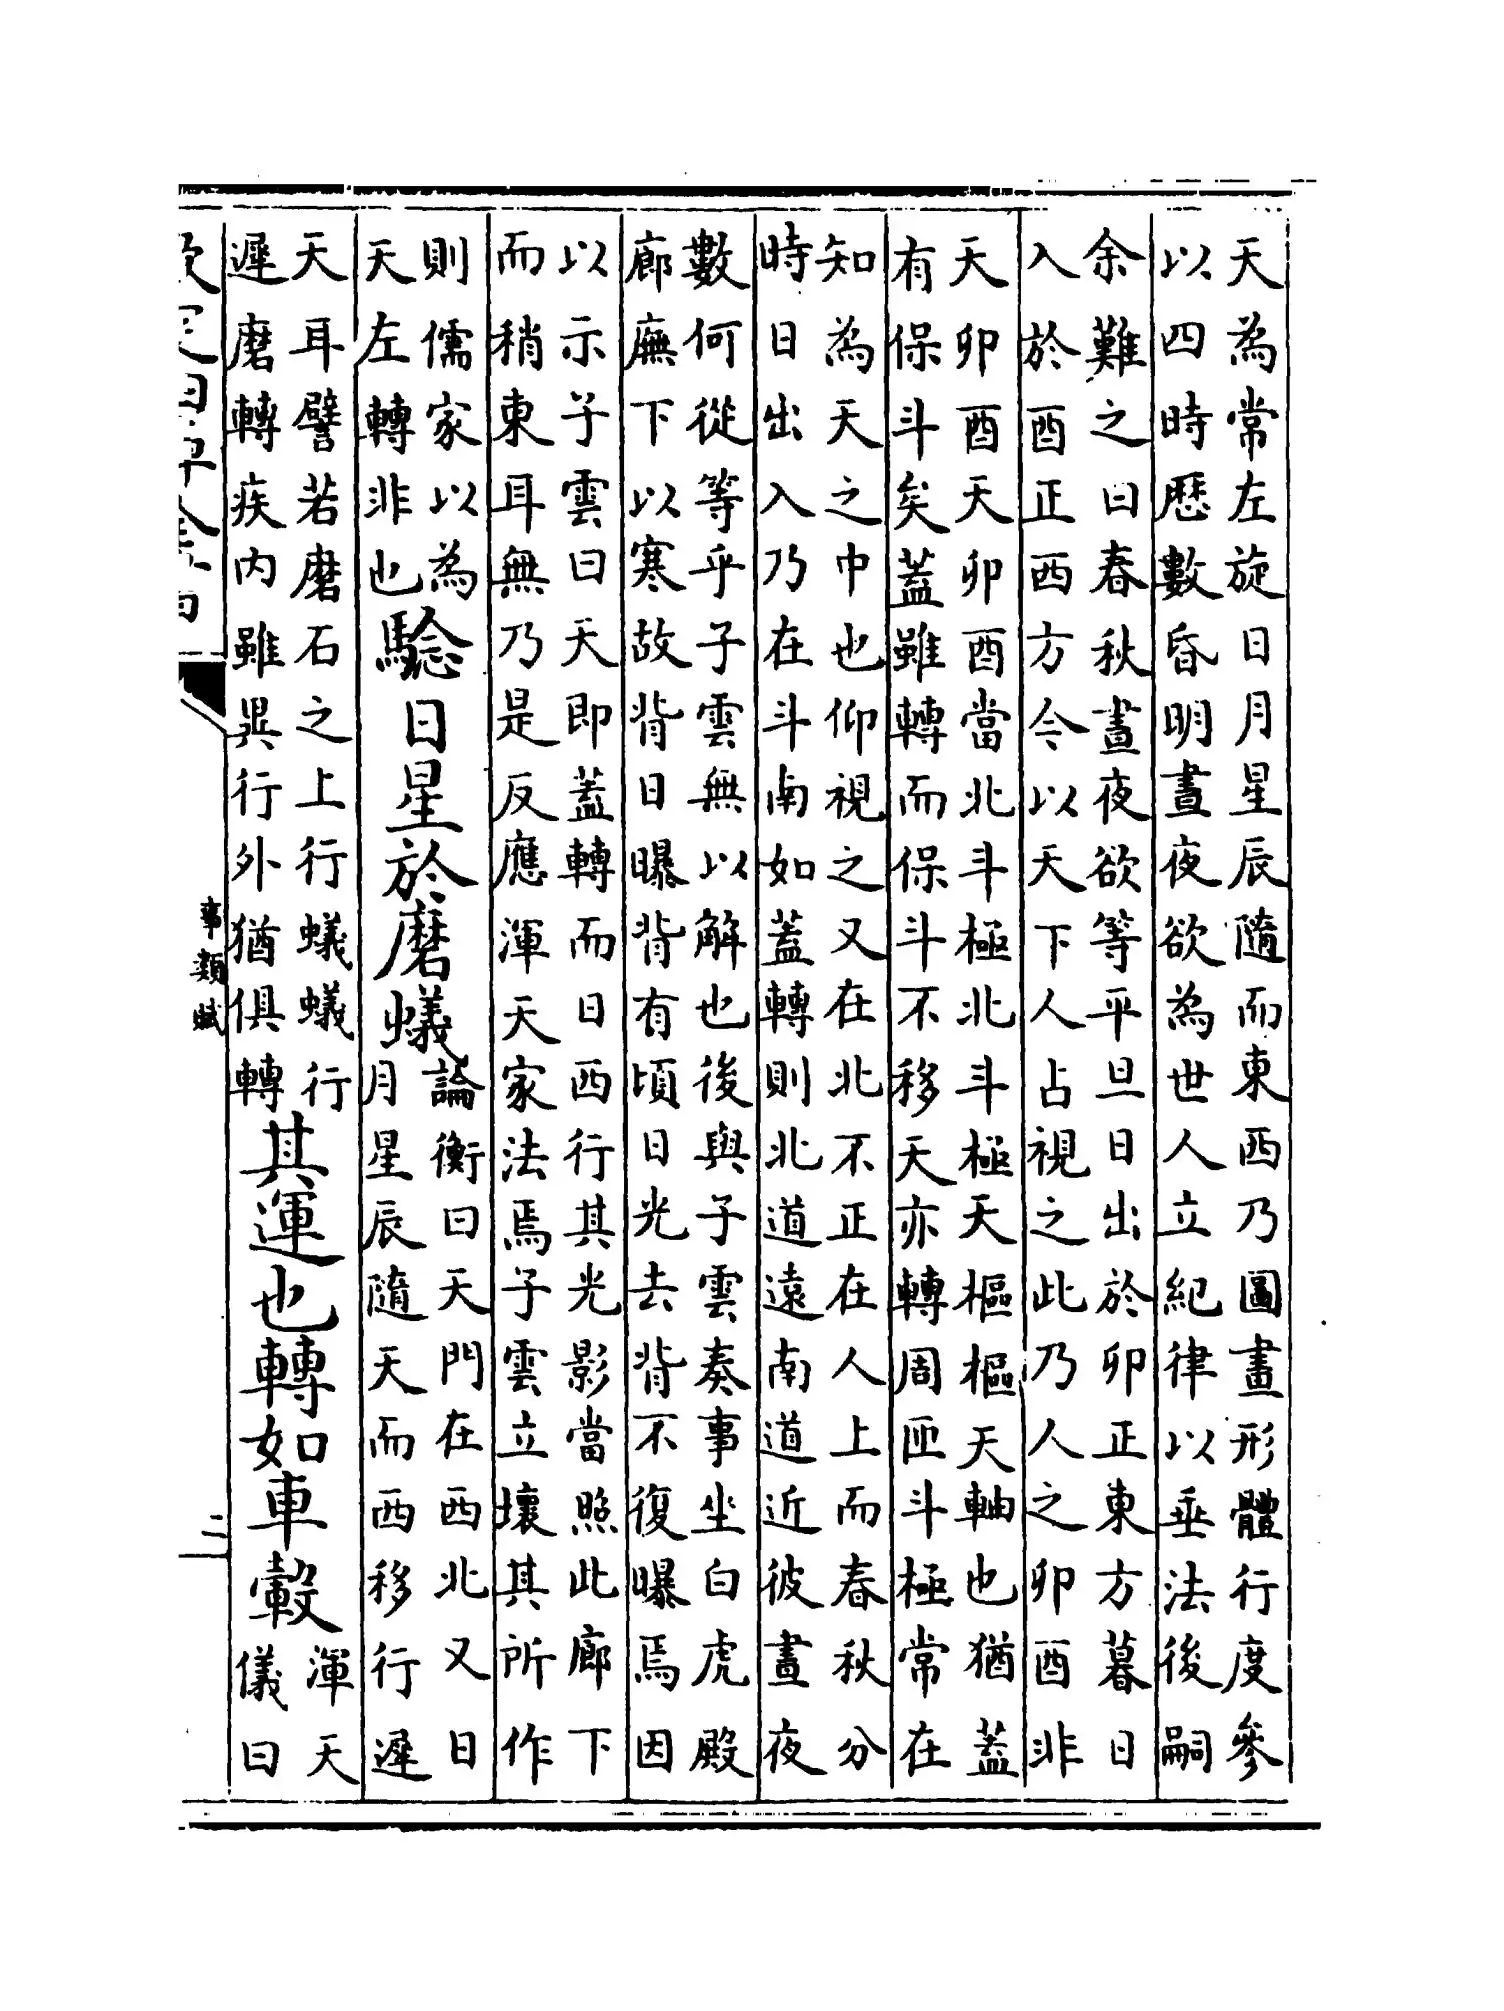 天為常左旋日月星辰隨而東西乃圖畫形體行度參
以四時厯數昏明晝夜欲為世人立紀律以垂法後嗣
余難之曰春秋晝夜欲等平旦日出於卯正東方暮日
入於酉正西方今以天下人占視之此乃人之卯酉非
天卯酉天卯酉當北斗極北斗極天樞樞天軸也猶蓋
有保斗矣蓋雖轉而保斗不移天亦轉周匝斗極常在
知為天之中也仰視之又在北不正在人上而春秋分
時日出入乃在斗南如蓋轉則北道遠南道近彼晝夜
數何從等乎子雲無以解也後與子雲奏事坐白虎殿
廊廡下以寒故背日曝背有頃日光去背不復曝焉因
以示子雲曰天即蓋轉而日西行其光影當照此廊下
而稍東耳無乃是反應渾天家法焉子雲立壞其所作
則儒家以為
天左轉非也
驗日星於磨蟻
論衡曰天門在西北又日
月星辰隨天而西移行遲
天耳譬若磨石之上行蟻蟻行
遲磨轉疾内雖異行外猶俱轉
其運也轉如車轂
渾天
儀曰
欽定四庫全書
事類賦
二